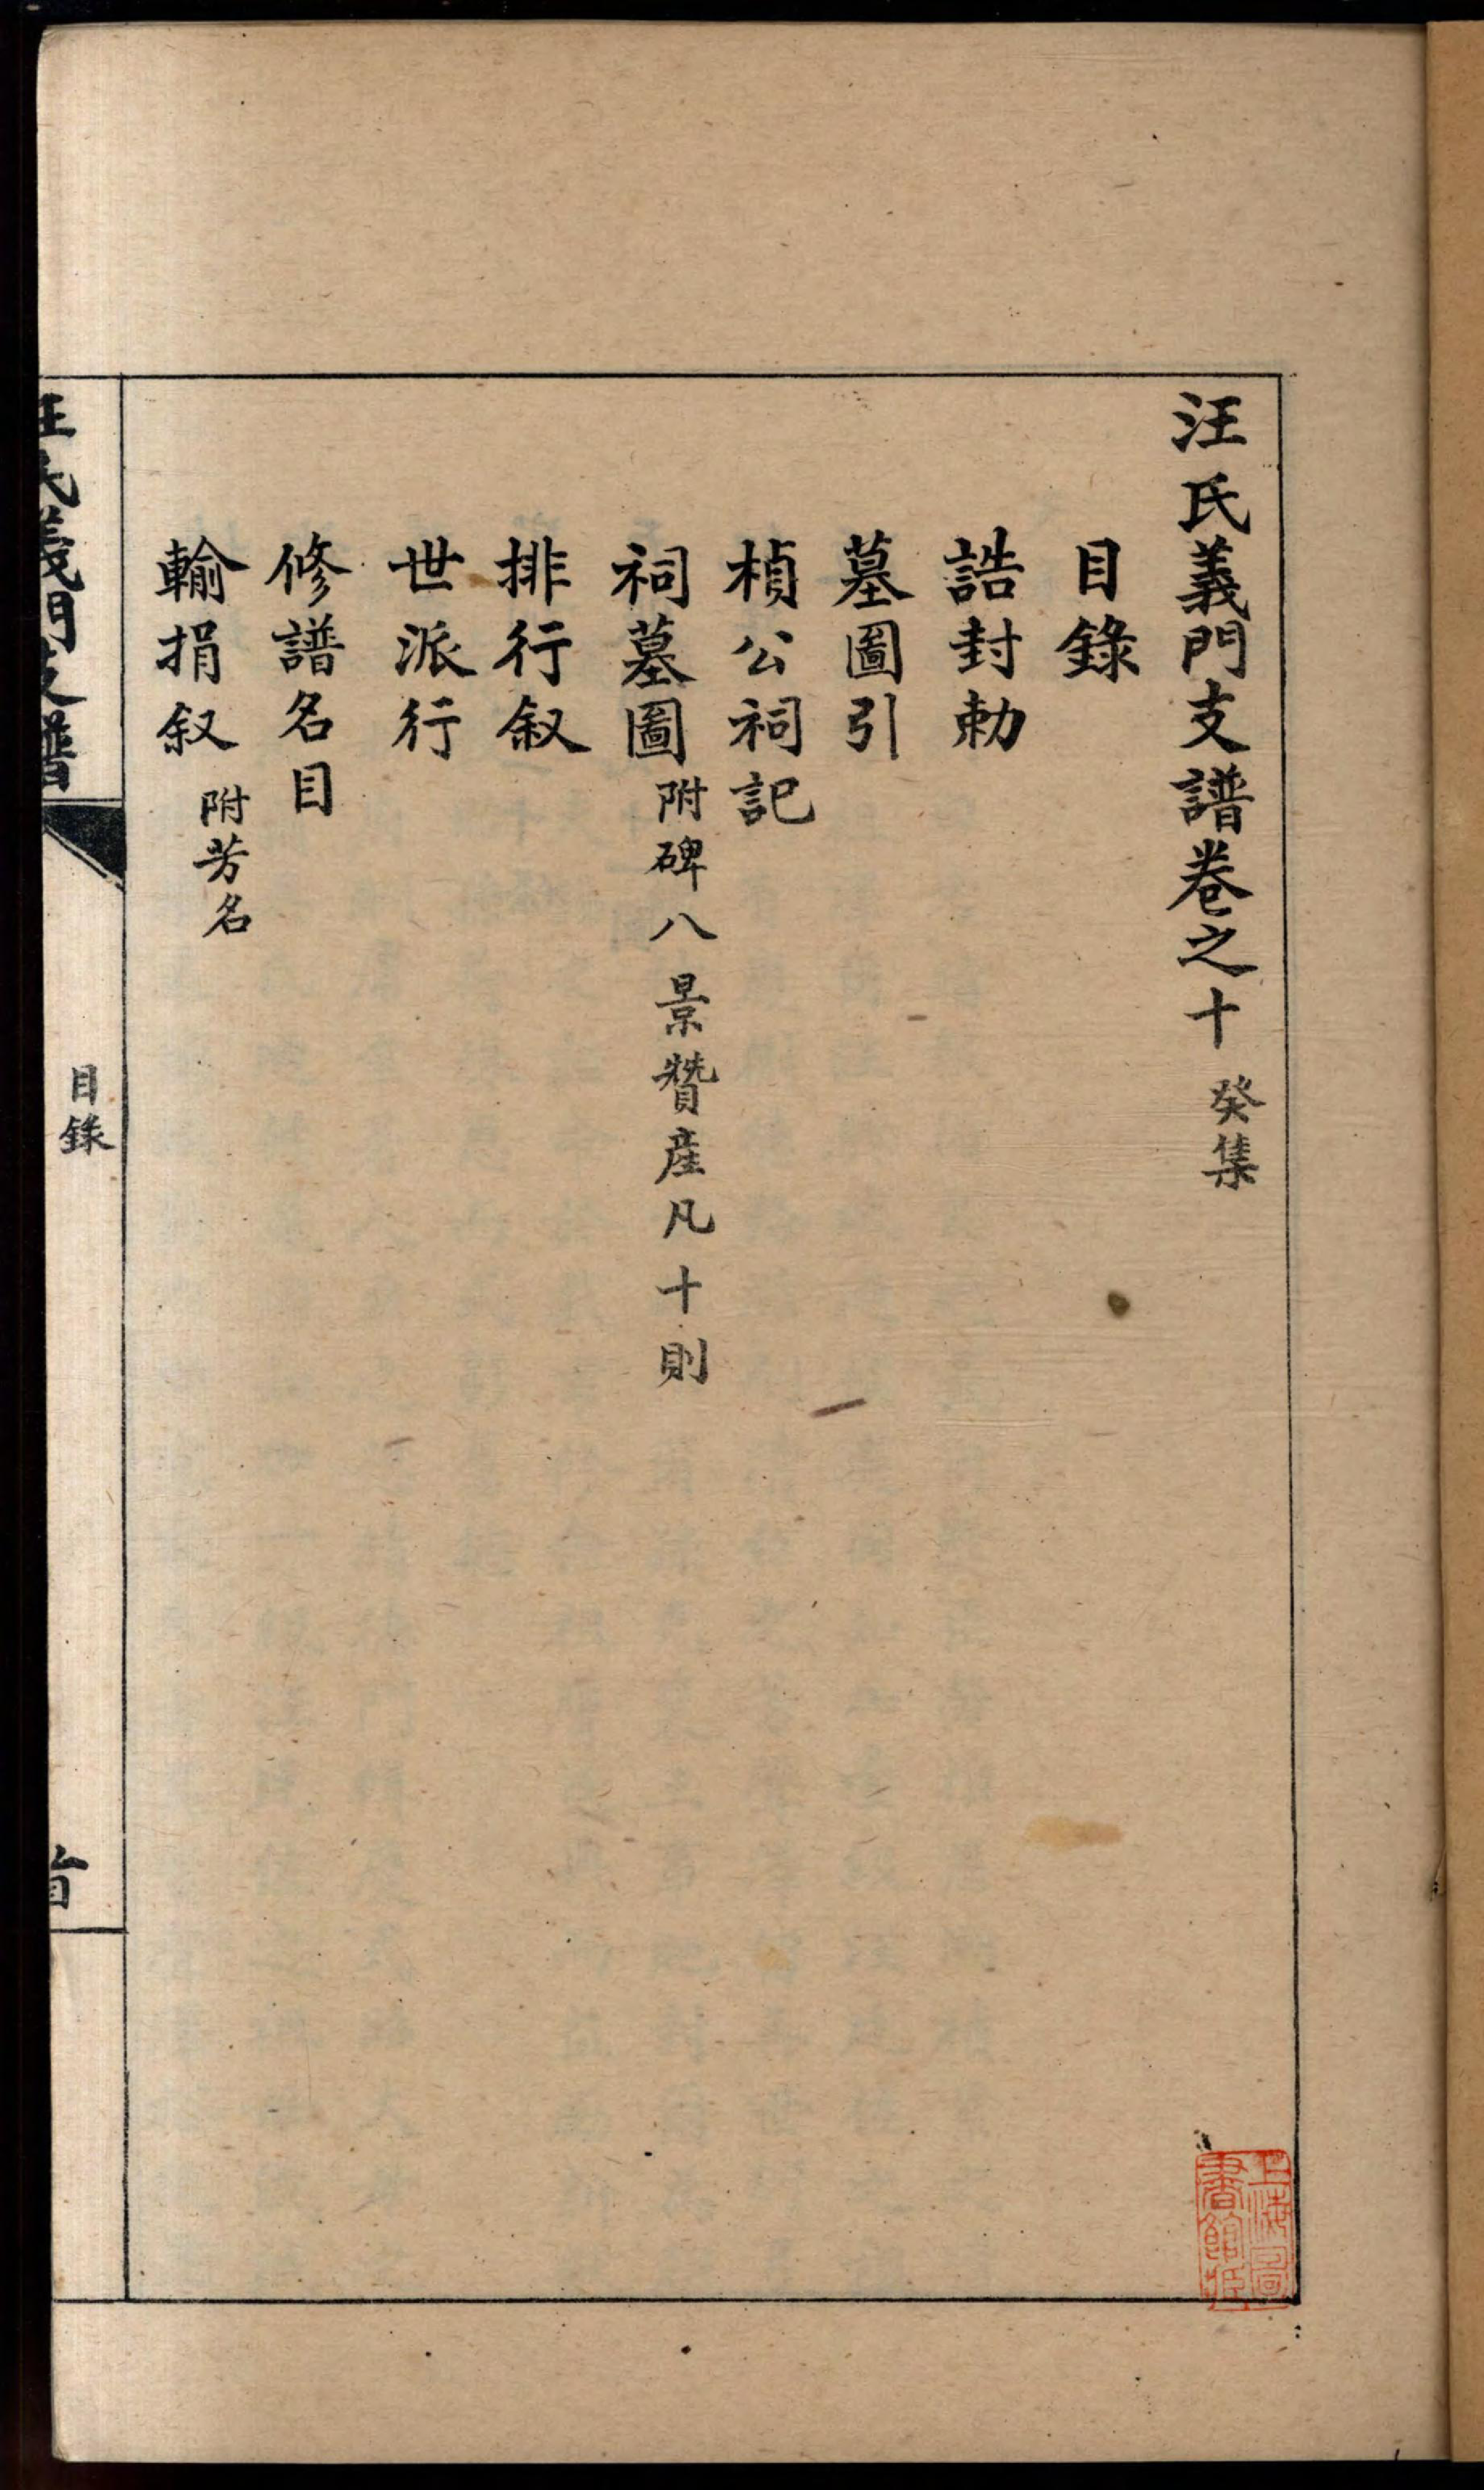 汪氏義門支譜卷之十 癸集
目錄
誥封勅
墓圖引
楨公祠記
祠墓圖 附碑八景贊産凡十則
排行叙
世派行
修譜名目
輸捐叙 附芳名
汪氏義門支譜
目錄
首
上海圖
書館藏